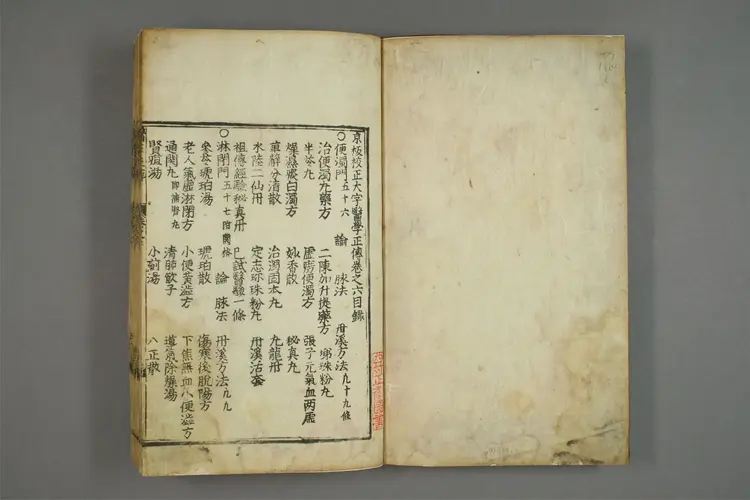 京板校正大字醫學正傳卷之六目錄
○便濁門五十六 論 脉法 丹溪方法凡十九條
治便濁凡藥方 二陳加升提藥方 珍珠粉丸
半苓丸 虛勞便濁方 張子元氣血两虛
燥濕痰白濁方 妙香散 秘真丸
萆薢分清散 治濁固本丸 九龍丹
水陸二仙丹 定志珍珠粉丸 丹溪治套
祖傳經驗秘真丹 已試醫驗一條
○淋閉門五十七附關格 論 脉法 丹溪方法凡九
參苓琥珀湯 琥珀散 傷寒後脫陽方
老人氣虛淋閉方 小便黃澁方 下焦無血小便澁方
通關丸即滋腎丸 清肺散子 導氣除燥湯
腎疸湯 小薊湯 八正散